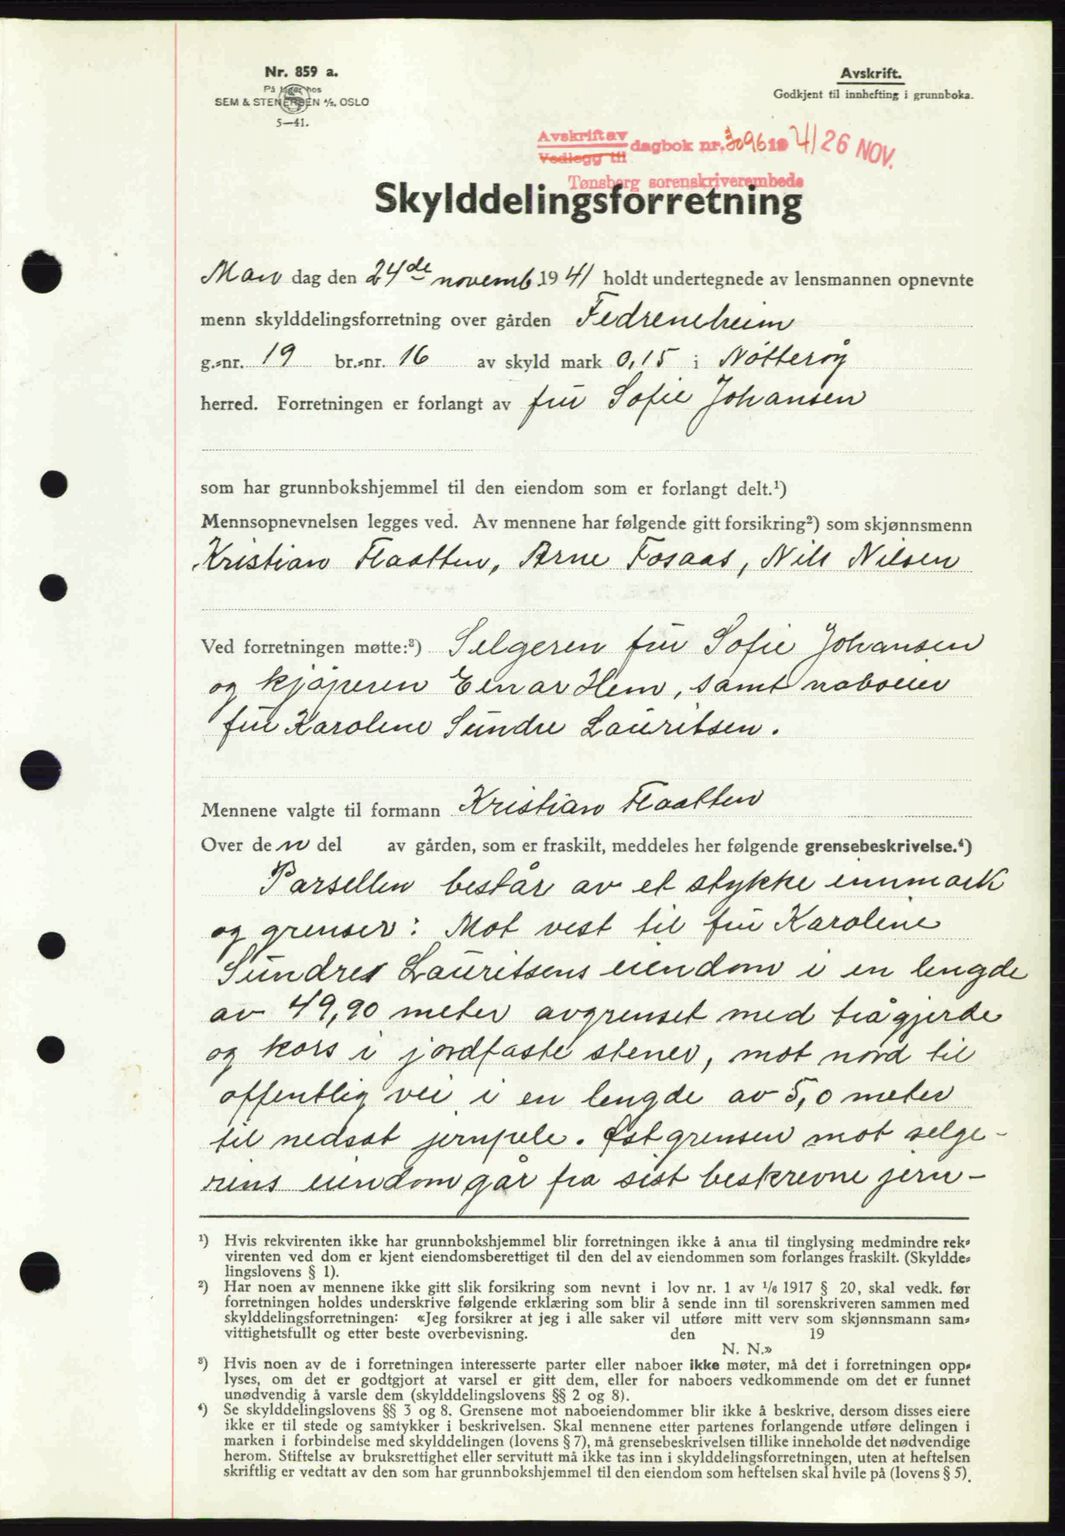 Nr. 859 a.
På lager hos
SEM & STENERSEN A/S, OSLO
5—41.
Avskrift.
Godkjent til innhefting i grunnboka.
Avskrift av
Vedlegg til
dagbok nr. 3096 19 41 26 NOV.
Tønsberg sorenskriverembede
Skylddelingsforretning
Man dag den 24de novemb. 19 41 holdt undertegnede av lensmannen opnevnte
menn skylddelingsforretning over gården Fedreneheim
g.-nr. 19 br.-nr. 16 av skyld mark 0,15 i Nøtterøy
herred. Forretningen er forlangt av fru Sofie Johansen
som har grunnbokshjemmel til den eiendom som er forlangt delt.¹)
Mennsopnevnelsen legges ved. Av mennene har følgende gitt forsikring²) som skjønnsmenn
Kristian Flaatten, Arne Fosaas, Nils Nilsen
Ved forretningen møtte:³) Selgeren fru Sofie Johansen
og kjøperen Einar Hem, samt naboeier
fru Karoline Sundre Lauritsen.
Mennene valgte til formann Kristian Flaatten
Over de n del av gården, som er fraskilt, meddeles her følgende grensebeskrivelse.⁴)
Parsellen består av et stykke innmark
og grenser: Mot vest til fru Karoline
Sundres Lauritsens eiendom i en lengde
av 49,90 meter avgrenset med trågjerde
og kors i jordfaste stener, mot nord til
offentlig vei i en lengde av 5,0 meter
til nedsat jernpele. Østgrensen mot selge-
rens eiendom går fra sist beskrevne jern-
¹) Hvis rekvirenten ikke har grunnbokshjemmel blir forretningen ikke å anta til tinglysing medmindre rek-
virenten ved dom er kjent eiendomsberettiget til den del av eiendommen som forlanges fraskilt. (Skyldde-
lingslovens § 1).
²) Har noen av mennene ikke gitt slik forsikring som nevnt i lov nr. 1 av 1/6 1917 § 20, skal vedk. før
forretningen holdes underskrive følgende erklæring som blir å sende inn til sorenskriveren sammen med
skylddelingsforretningen: «Jeg forsikrer at jeg i alle saker vil utføre mitt verv som skjønnsmann sam-
vittighetsfullt og etter beste overbevisning. den 19
N. N.»
³) Hvis noen av de i forretningen interesserte parter eller naboer ikke møter, må det i forretningen opp-
lyses, om det er godtgjort at varsel er gitt dem, eller for naboers vedkommende om det er funnet
unødvendig å varsle dem (skylddelingslovens §§ 2 og 8).
⁴) Se skylddelingslovens §§ 3 og 8. Grensene mot naboeiendommer blir ikke å beskrive, dersom disses eiere
ikke er til stede og samtykker i beskrivelsen. Skal mennene etter partenes forlangende utføre delingen i
marken i forbindelse med skylddelingen (lovens § 7), må grensebeskrivelsen tillike inneholde det nødvendige
herom. Stiftelse av bruksrettighet eller servitutt må ikke tas inn i skylddelingsforretningen, uten at heftelsen
skriftlig er vedtatt av den som har grunnbokshjemmel til den eiendom som heftelsen skal hvile på (lovens § 5).